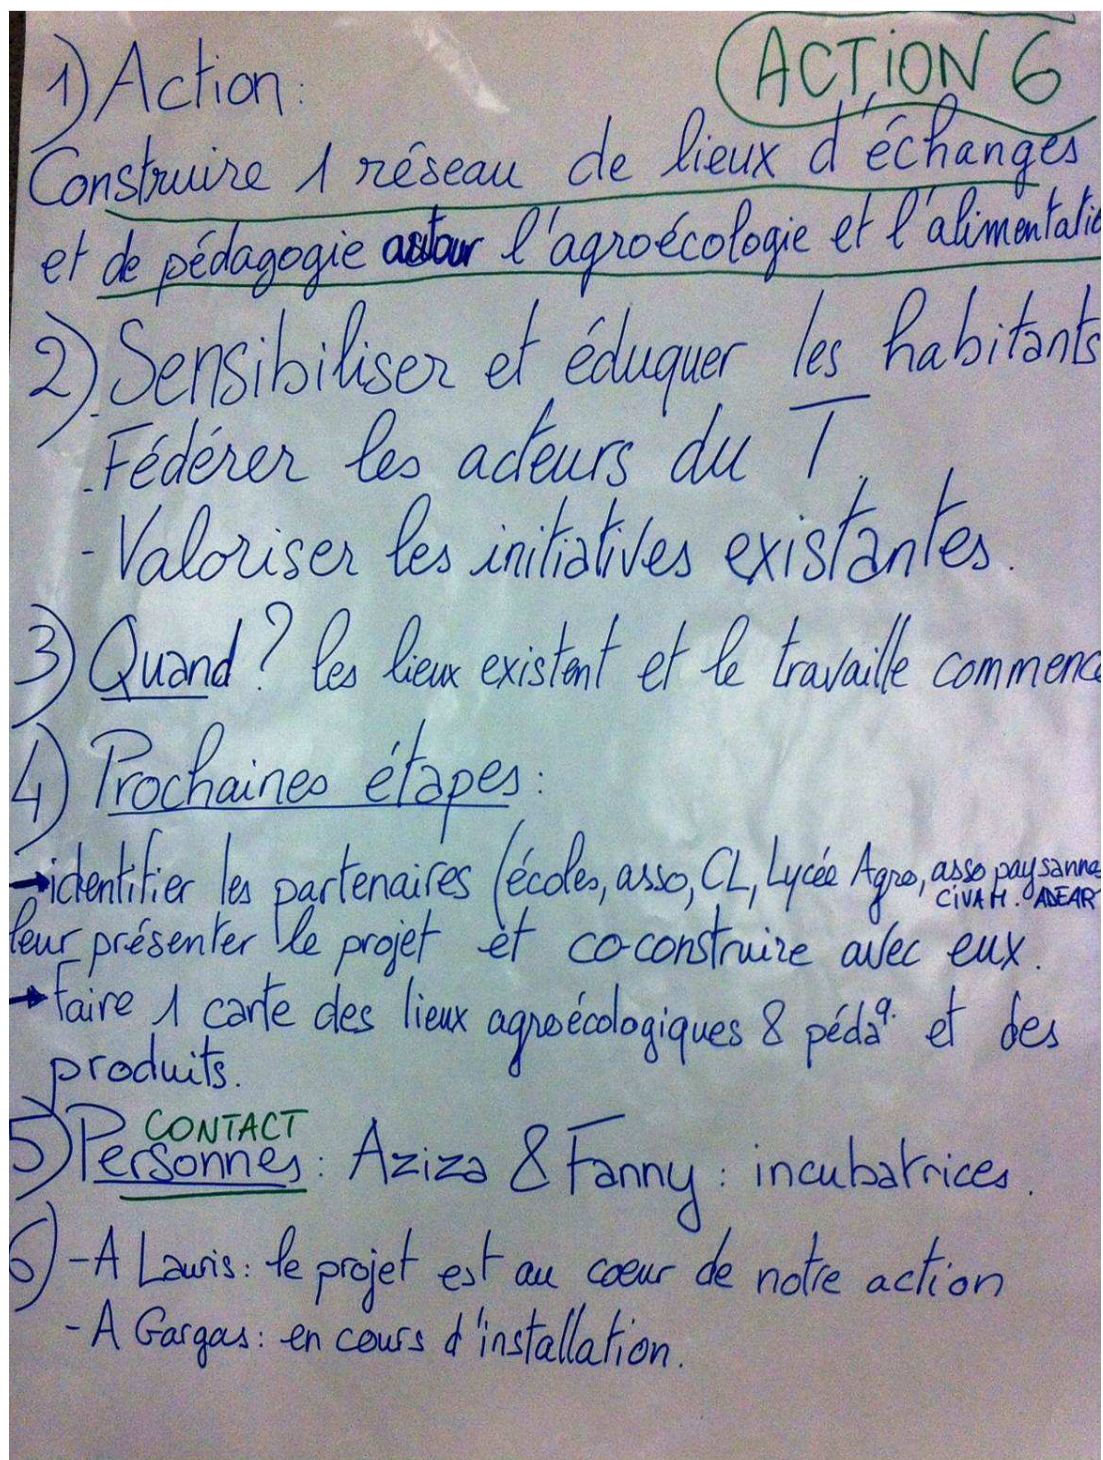 ACTiON 6
1) Action:
Construire 1 réseau de lieux d'échanges
et de pédagogie autour l'agroécologie et l'alimentatio
2) Sensibiliser et éduquer les habitants
- Fédérer les acteurs du T.
- Valoriser les initiatives existantes.
3) Quand? les lieux existent et le travaille commence
4) Prochaines étapes:
→ identifier les partenaires (écoles, asso, CL, Lycée Agro, asso paysanne
CiVAM. ADEAR
leur présenter le projet et co-construire avec eux.
→ faire 1 carte des lieux agroécologiques & pédag. et des
produits.
CONTACT
5) Personnes: Aziza & Fanny: incubatrices.
6) - A Lauris: le projet est au coeur de notre action
- A Gargas: en cours d'installation.